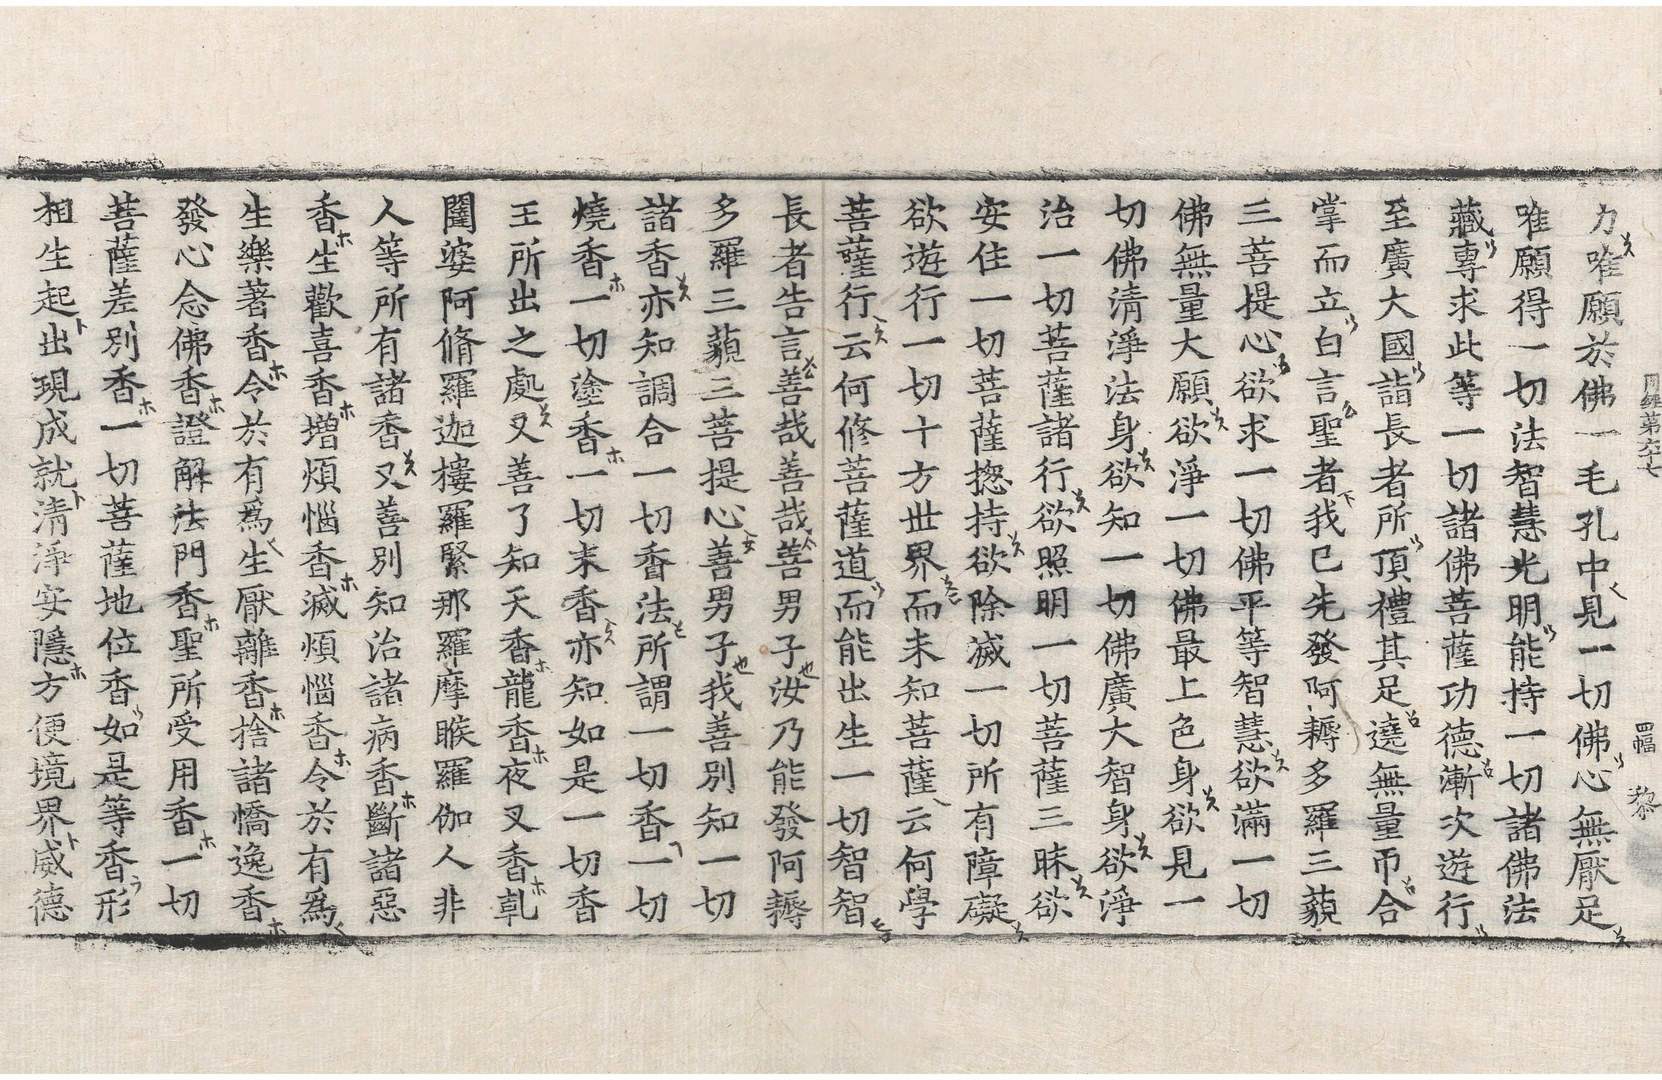 周経第六十七 四幅 黎
力唯願於佛一毛孔中見一切佛心無厭足
唯願得一切法智慧光明能持一切諸佛法
藏專求此等一切諸佛菩薩功德漸次遊行
至廣大國詣長者所頂禮其足遶無量帀合
掌而立白言聖者我已先發阿耨多羅三藐
三菩提心欲求一切佛平等智慧欲滿一切
佛無量大願欲淨一切佛最上色身欲見一
切佛清淨法身欲知一切佛廣大智身欲淨
治一切菩薩諸行欲照明一切菩薩三昧欲
安住一切菩薩捴持欲除滅一切所有障礙
欲遊行一切十方世界而未知菩薩云何學
菩薩行云何修菩薩道而能出生一切智智
長者告言善哉善哉善男子汝乃能發阿耨
多羅三藐三菩提心善男子我善別知一切
諸香亦知調合一切香法所謂一切香一切
燒香一切塗香一切末香亦知如是一切香
王所出之處又善了知天香龍香夜叉香乹
闥婆阿脩羅迦樓羅緊那羅摩睺羅伽人非
人等所有諸香又善別知治諸病香斷諸惡
香生歡喜香增煩惱香滅煩惱香令於有爲
生樂著香令於有爲生厭離香捨諸憍逸香
發心念佛香證解法門香聖所受用香一切
菩薩差別香一切菩薩地位香如是等香形
相生起出現成就清淨安隱方便境界威德